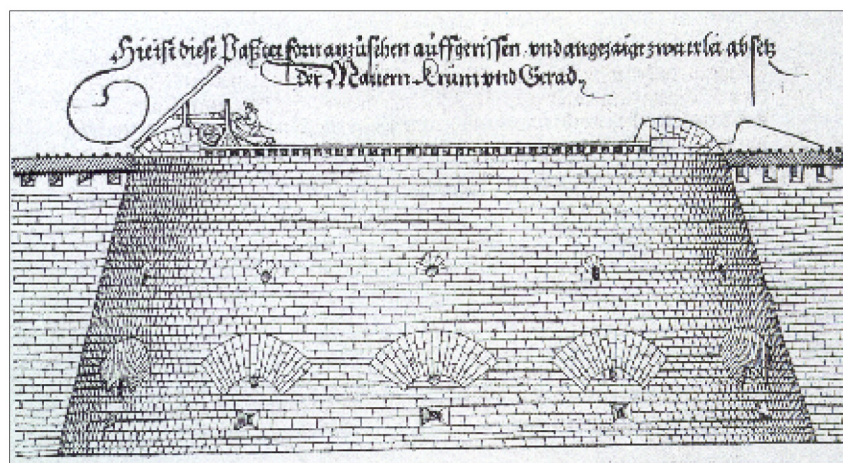 Hie ist diese Pastey forn anzusehen auffgerissen vnd angezaigt zweierlei absetz
der Mauern Krum vnd Gerad.